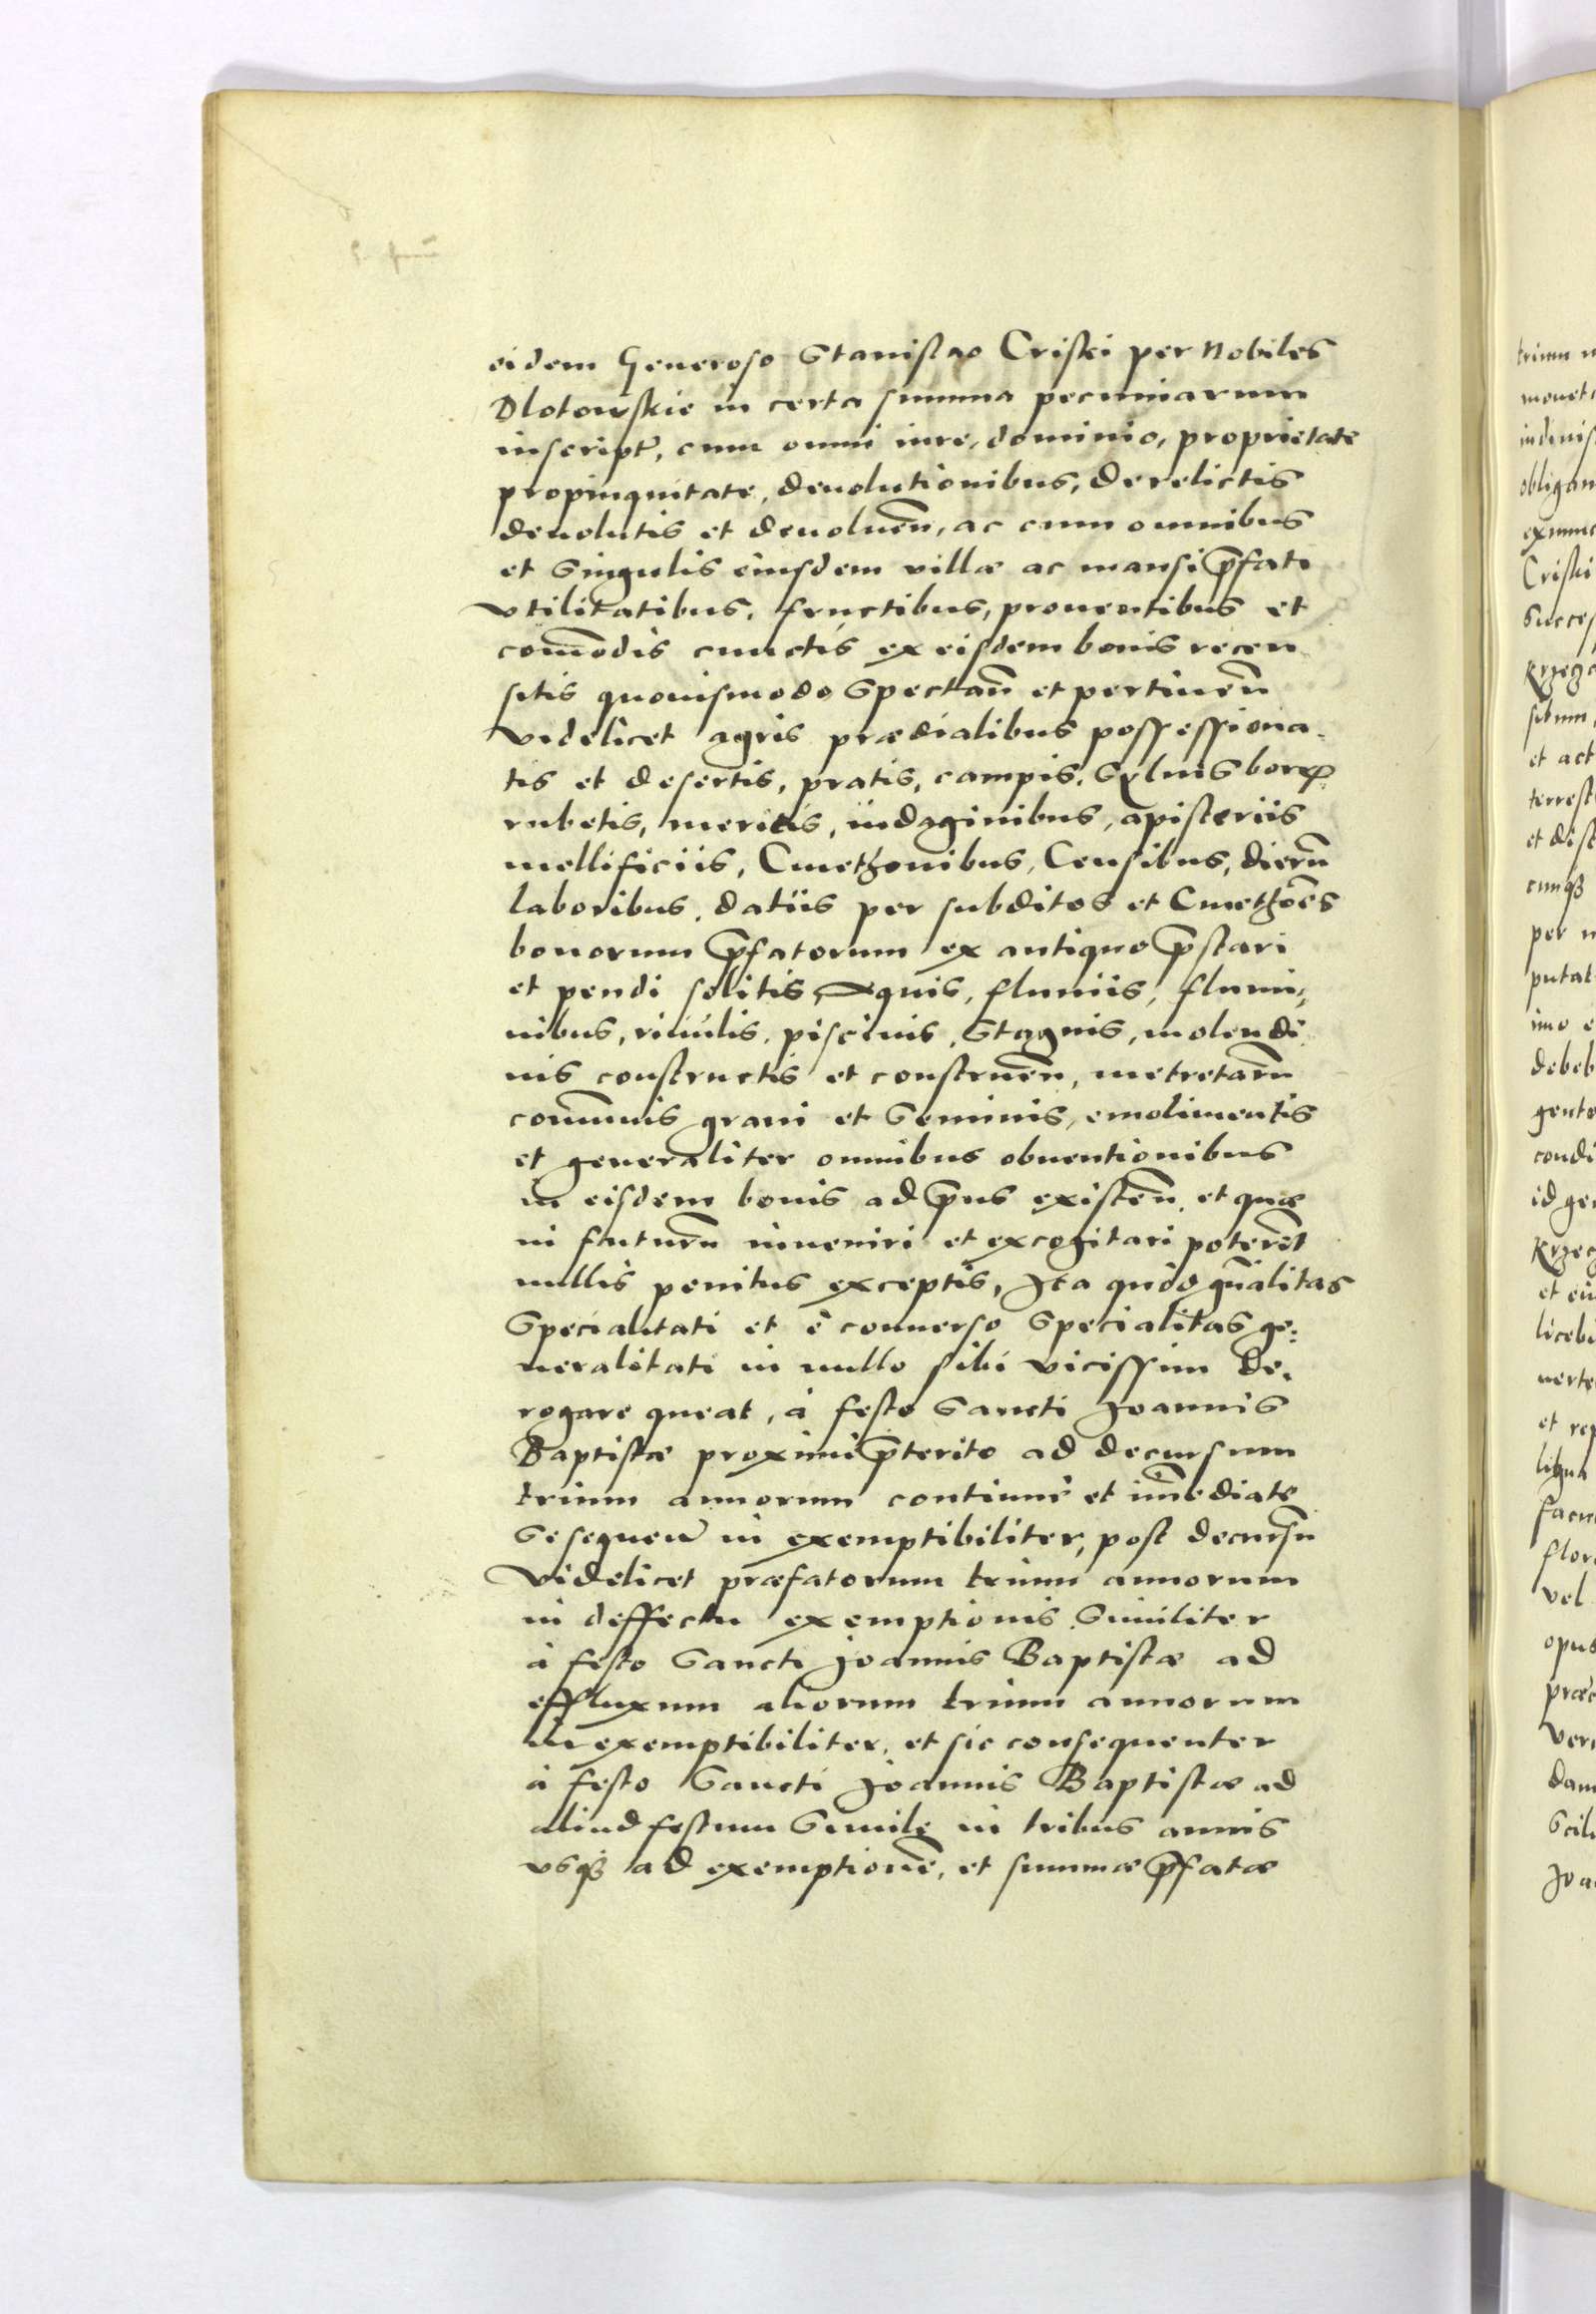 eidem Generoso Stanislao Criski per Nobiles
Dlotowskie in certa summa pecuniarum
inscript, cum omni iure, dominio, proprietate
propinquitate, deuolutionibus, derelictis
deuolutis et deuoluen̄, ac cum omnibus
et Singulis eiusdem villæ ac mansi p̄fati
vtilitatibus, fructibus, prouentibus et
com̄odis cunctis ex eisdem bonis recen
sitis quouismodo Spectan̄ et pertinen̄
videlicet agris prædialibus possessiona-
tis et desertis, pratis, campis, Syluis bor
rubetis, mericis, indaginibus, apisteriis
mellificiis, Cmethonibus, Censibus, dierū
laboribus, datiis per subditos et Cmethōes
bonorum p̄fatorum ex antiquo p̄stari
et pendi solitis, Aquis, fluuiis, flumi-
nibus, riuulis, piscinis, Stagnis, molendi
nis constructis et construen̄, metretarū
com̄unis grani et Seminis, emolimentis
et generaliter omnibus obuentionibus
in eisdem bonis ad p̄ns existen̄, et quæ
in futurū inueniri et excogitari poterēt
nullis penitus exceptis, Ita quòd gn̄alitas
Specialitati et è conuerso Specialitas ge-
neralitati in nullo sibi vicissim de-
rogare queat, à festo Sancti Joannis
Baptistæ proximè p̄terito ad decursum
trium annorum continuè et im̄ediatè
Se sequen̄ in exemptibiliter, post decursū
videlicet præfatorum trium annorum
in deffectu exemptionis Similiter
à festo Sancti Joannis Baptistæ ad
effluxum aliorum trium annorum
in exemptibiliter, et sic consequenter
à festo Sancti Joannis Baptistæ ad
aliud festum Simile in tribus annis
vsqȝ ad exemptionē, et summæ p̄fatæ